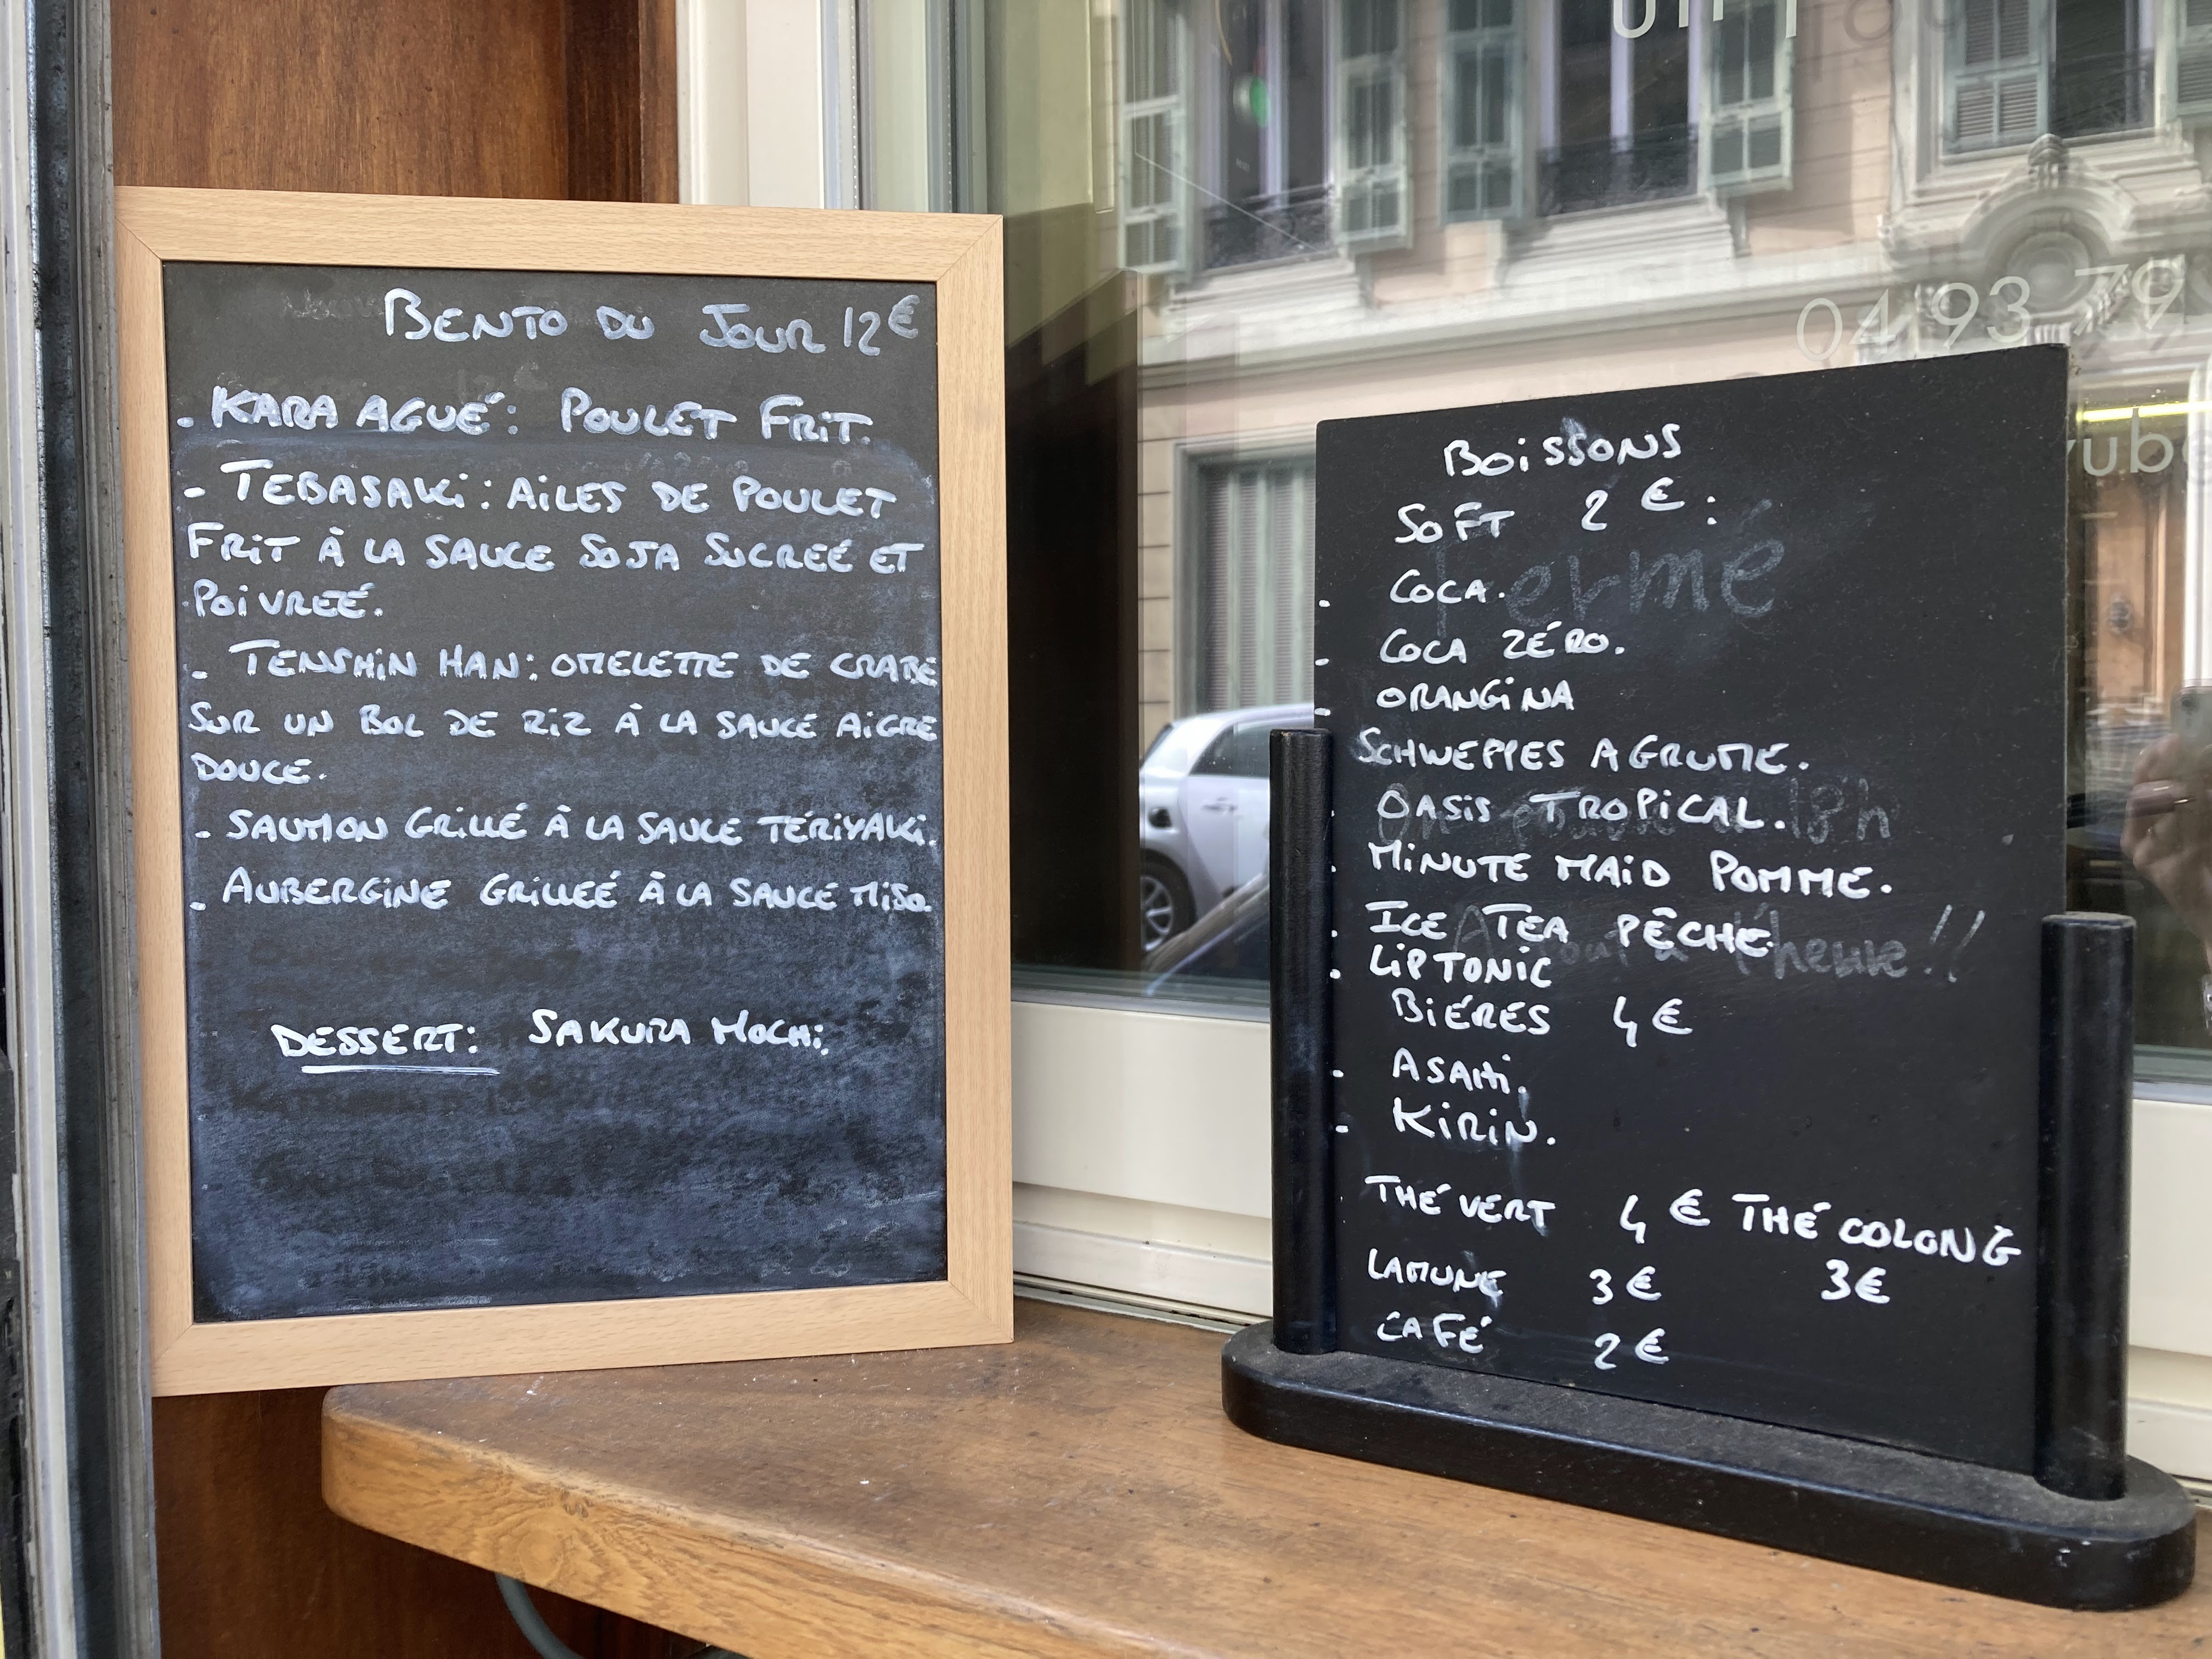 BENTO DU JOUR 12€
. KARA AGUÉ: POULET FRIT.
- TEBASAKI: AILES DE POULET
FRIT À LA SAUCE SOJA SUCREÉ ET
POIVREÉ.
- TENSHIN HAN: OMELETTE DE CRABE
SUR UN BOL DE RIZ À LA SAUCE AIGRE
DOUCE.
- SAUMON GRILLÉ À LA SAUCE TERIYAKI.
- AUBERGINE GRILLEÉ À LA SAUCE MISO.
DESSERT: SAKURA MOCHI.
04 93 79
BOISSONS
SOFT 2€:
Fermé
. COCA.
- COCA ZÉRO.
- ORANGINA
SCHWEPPES AGRUME.
. OASIS TROPICAL.
18h
. MINUTE MAID POMME.
. ICE TEA PÊCHE
l'heure!!
. LIPTONIC
BIÉRES 4€
- ASAHI.
- KIRIN.
. THÉ VERT 4€ THÉ OOLONG
LAMUNE 3€ 3€
CAFÉ 2€